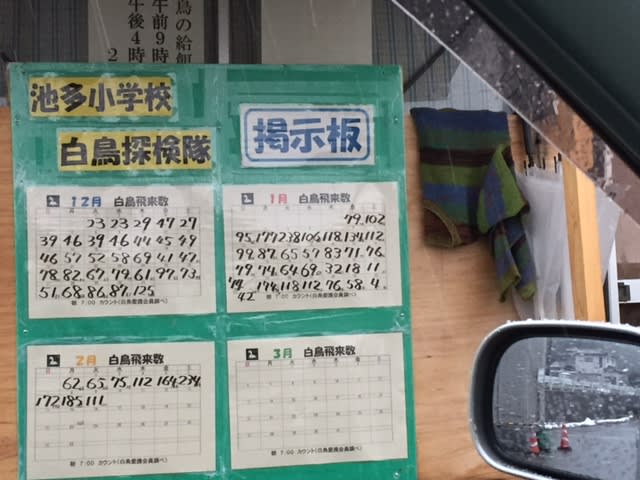 鳥の給餌
午前9時
午後4時
2
池多小学校
白鳥探検隊
掲示板
12月 白鳥飛来数
23 23 29 47 27
39 46 39 46 44 45 49
46 57 52 58 69 41 47
78 82 67 79 61 97 73
51 68 86 87 125
朝 7:00 カウント(白鳥愛護会員調べ)
1月 白鳥飛来数
79 102
95 177 238 106 118 134 112
99 87 65 57 83 71 76
79 74 64 69 32 18 11
174 118 112 76 58 4
42
朝 7:00 カウント(白鳥愛護会員調べ)
2月 白鳥飛来数
62 65 75 112 164 234
172 185 111
朝 7:00 カウント(白鳥愛護会員調べ)
3月 白鳥飛来数
朝 7:00 カウント(白鳥愛護会員調べ)